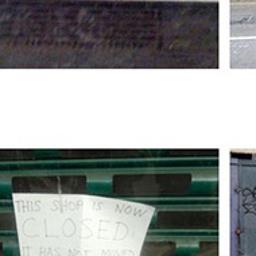 THIS SHOP IS NOW
CLOSED.
IT HAS NOT MOVED